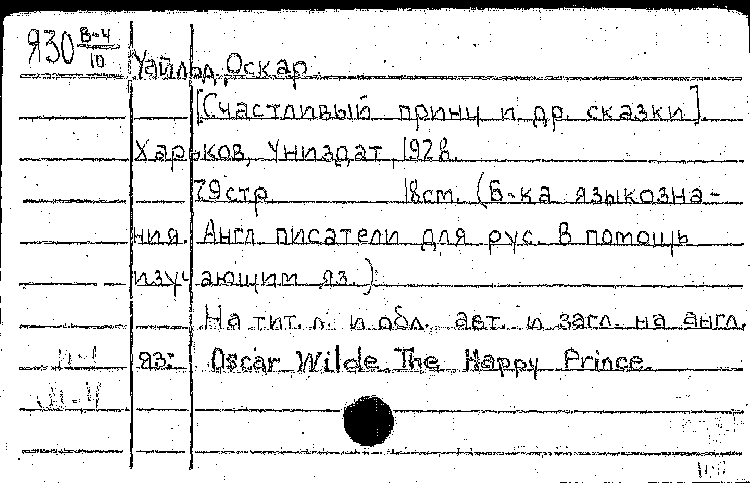 Я30 В-4/10
Уайльд, Оскар.
[Счастливый принц и др. сказки].
Харьков, Униздат, 1928.
79 стр. 18 см. (Б-ка языкозна-
ния. Англ. писатели для рус. В помощь
изучающим яз.)
На тит. л. и обл. авт. и загл. на англ.
яз: Oscar Wilde. The Happy Prince.